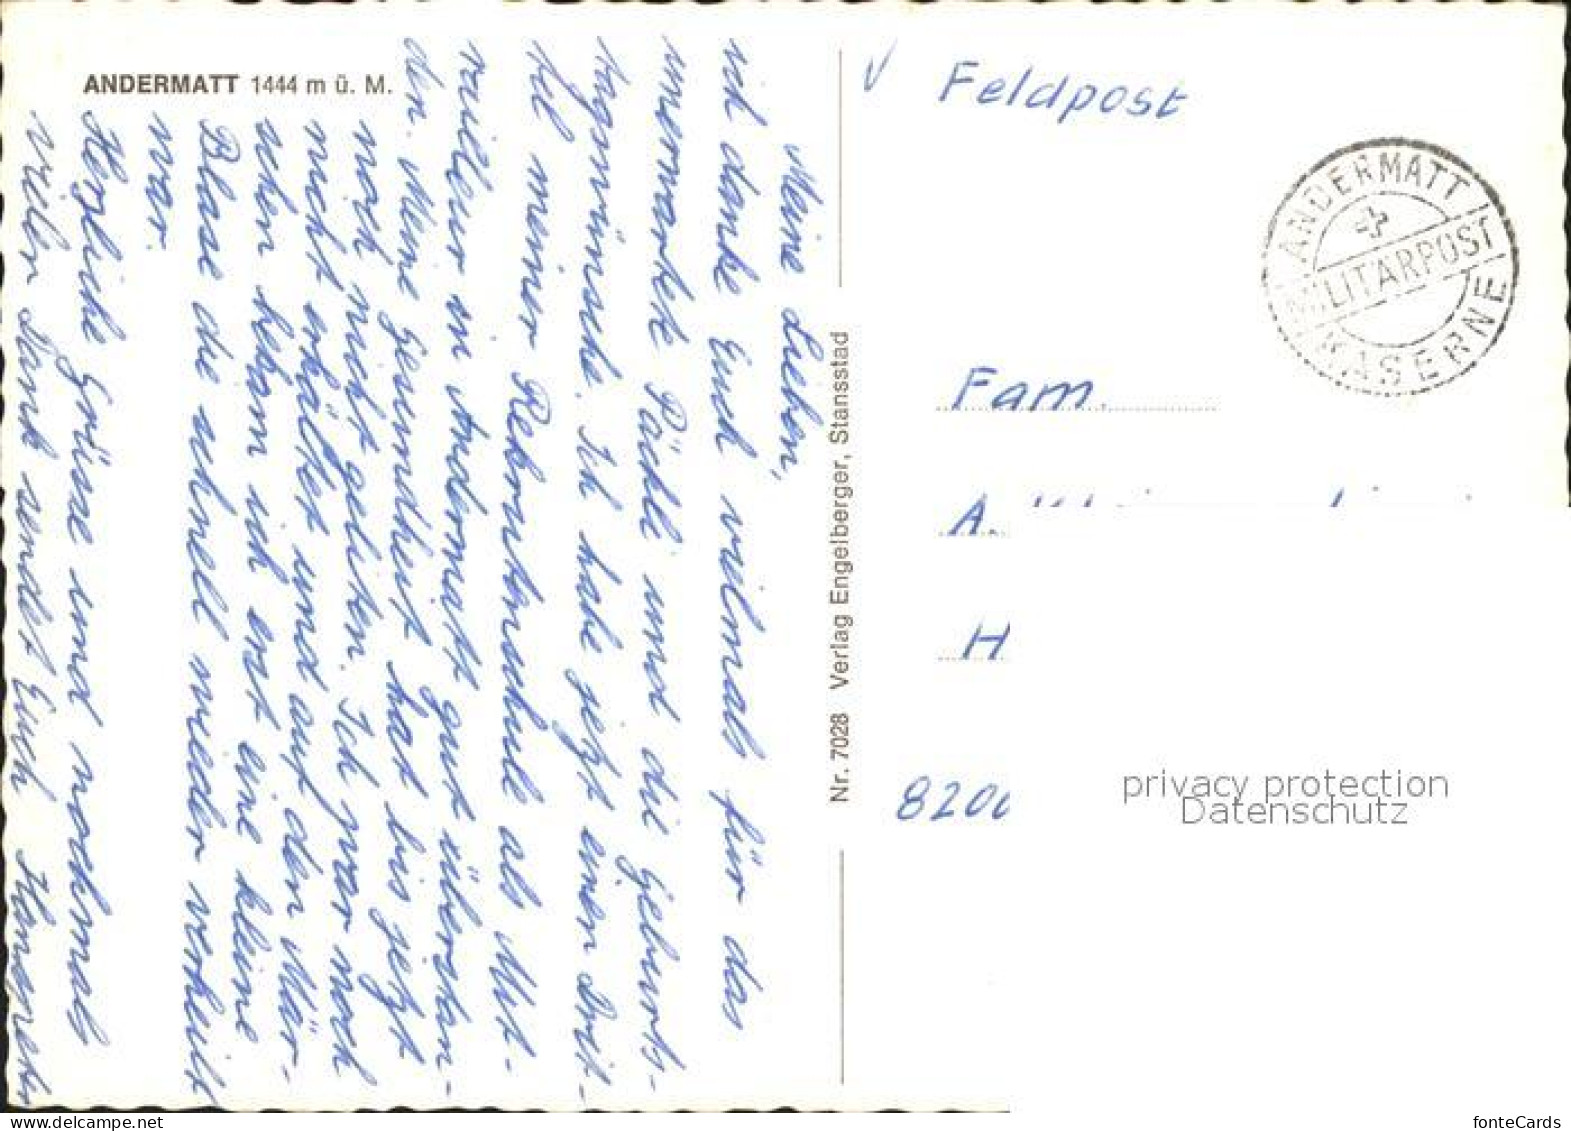 ANDERMATT 1444 m ü. M.
Meine Lieben,
ich danke Euch vielmals für das
unerwartete Päckli und die Geburts-
tagswünsche. Ich habe jetzt einen Drit-
tel meiner Rekrutenschule als Mit-
railleur in Andermatt gut überstan-
den. Meine Gesundheit hat bis jetzt
noch nicht gelitten. Ich war noch
nicht erkältet und auf den Mär-
schen bekam ich erst eine kleine
Blase die schnell wieder verheilt
war.
Herzliche Grüsse und nochmals
vielen Dank sendet Euch
Nr. 7028 Verlag Engelberger, Stansstad
Feldpost
ANDERMATT
MILITÄRPOST
KASERNE
Fam.
A.
H
8200
privacy protection
Datenschutz
www.delcampe.net
fonteCards